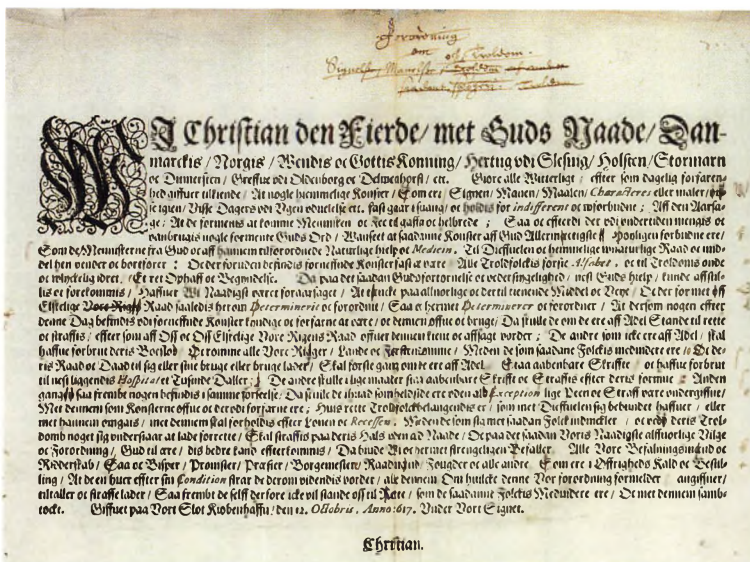 Forordning
om
Signelse / Manelse /
Wj Christian den Fierde / met Guds Naade / Dan-
marckis / Norgis / Wendis oc Gottis Konning / Hertug vdi Slesuig / Holsten / Stormarn
oc Dytmersken / Greffue vdi Oldenborg oc Delmenhorst / etc. Giøre alle Witterligt / effter som dagelig forfaren-
hed giffuer tilkiende / At nogle hemmelige Konster / Som ere Signen / Manen / Maalen / Characteres eller maler /
Visse Dagers vdi Ugen vduelelse etc. fast gaar i suang / oc holdis for indifferent oc vforbudne ; Aff den Aarsa-
ge / At de formenis at komme Mennisken oc til gaffn oc helbrede ; Saa oc effterdi der vdi vndertiden mengis oc
vanbrugis nogle formente Guds Ord / Wanseet at saadanne Konster aff Gud Allermectigste forbudne ere /
Som de Menniskerne fra Gud oc aff hannem tilforordnede Naturlige hielp oc Medicin. Til Dieffuelen oc hemmelige vnaturlige Raad oc mid-
del hen vender oc bortfører : Oc der foruden befindis forneffnde Konster fast at være Alle Troldfolckis første Alfabet, oc til Troldoms onde
oc vchristelig idret / Et ret Ophaff oc Begyndelse. Da paa det saadan Guds fortørnelse oc vederstyggelighed / nest Guds hielp / kunde affstil-
lis oc forekommis / Haffuer Wi Naadigst været foraarsaget / At tencke paa alluorlige oc der til tienende Middel oc Veye / Oc der for met Oss
Elskelige Vort Rigens Raad saaledis her om Determineris oc forordnit / Saa oc hermet Determinerer oc forordner / At dersom nogen effter
denne Dag befindis vdi forneffnde Konster kyndige oc forfarne at være / oc dennem øffue oc bruge / Da skulle de om de ere aff Adel Stande til rette
oc straffis / effter som aff Oss oc Oss Elskelige Vore Rigens Raad offuer dennem kient oc affsagt vorder ; De andre som icke ere aff Adel / skal
haffue forbrut deris Boeslod / Oc rømme alle Vore Riger / Lande oc Førstendømme / Meden de som saadane Folckis medvidere ere / Oc de-
ris Raad oc Daad til sig eller sine bruge eller bruge lader / Skal første gang om de ere aff Adel Staa aabenbare Skriffte / oc haffue forbrut
til nest liggendis Hospital et Tusinde Daller ; De andre skulle i lige maader staa aabenbare Skriffte oc Straffis effter deris formue : Anden
gang saa frembt nogen befindis i samme forseelse / Da skulle de ihuad som helst de ere vden ald Exception lige Peen oc Straff være vndergiffuit /
Met dennem som Konsterne øffue oc der vdi forfarne ere ; Huis rette Troldfolck belangendis er / som met Dieffuelen sig bebundet haffuer / eller
met hannem omgaas / met dennem skal forholdis effter Loven oc Recessen. Meden de som sig met saadan Folck indvickler / oc ved deris Trol-
domb noget sig vnderstaar at lade forrette / Skal straffis paa deris Hals vden ad Naade / Oc paa det saadan Voris Naadigste alffuorlige Vilge
oc Forordning / Gud til ære / dis bedre kand effterkommis / Da biude Wi oc her met strengeligen befaller Alle Vore Befalningsmend oc
Ridderskab / Saa oc Bisper / Promster / Præster / Borgemestere / Raadmend / Fougder oc alle andre Som ere i Offrigheds Kald oc Bestil-
ling / At de en huer effter sin Condition strax de derom videndis vorder / alle dennem Om huilcke denne Vor forordning formelder angiffuer /
tiltaller oc straffe lader / Saa frembt de self derfore icke vil stande oss til Rette / som de saadanne Folckis Medvidere ere / Oc met dennem samb-
tøckt. Giffuet paa Vort Slot Kiøbenhaffn / den 12. Octobris, Anno: 617. Vnder Vort Signet.
Christian.